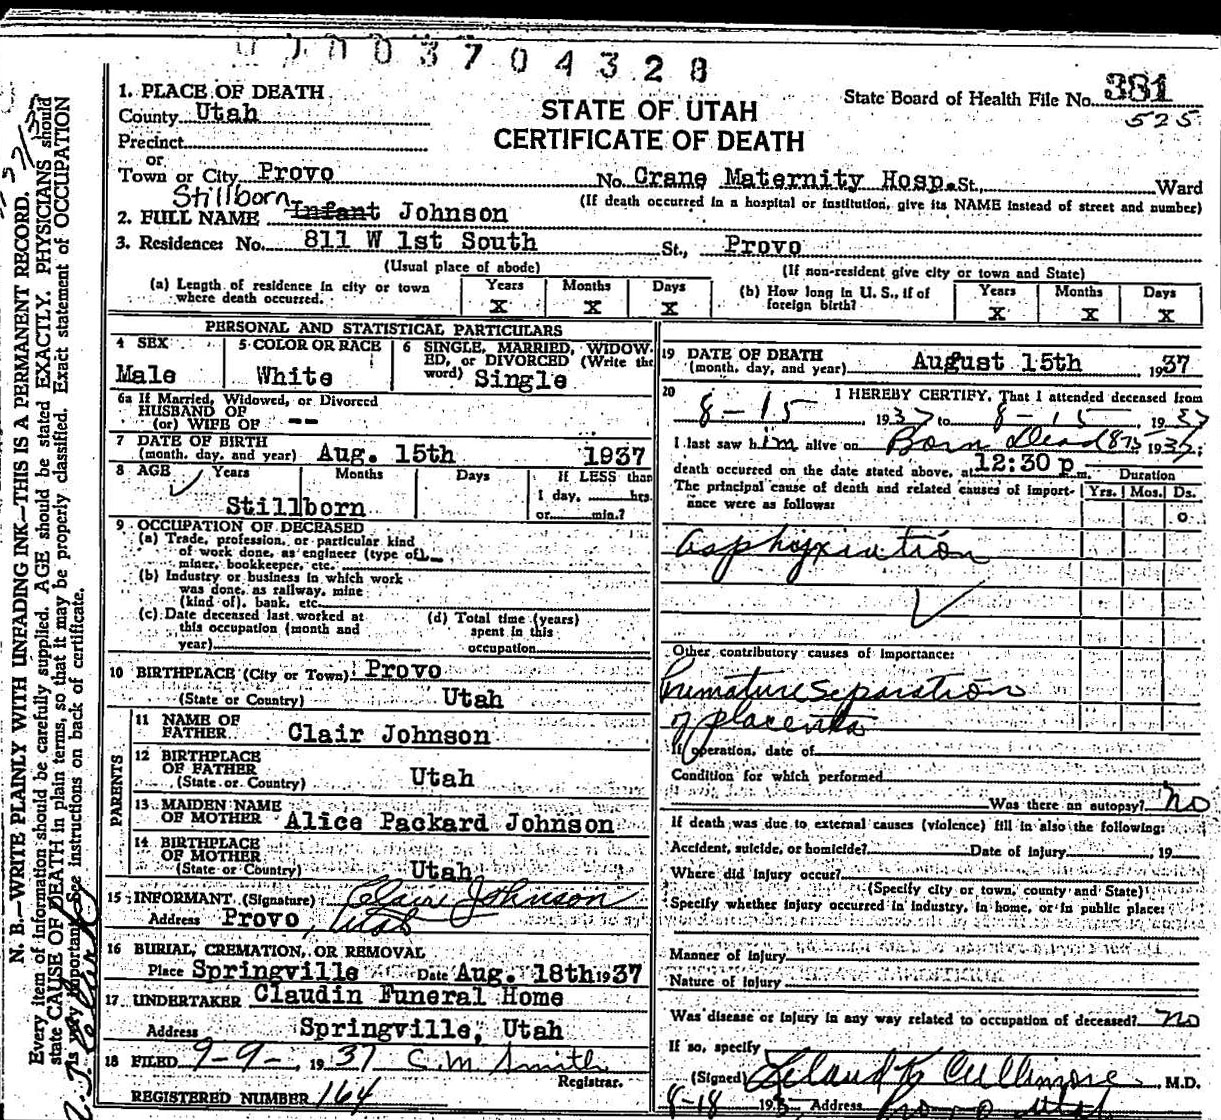 003704328
State Board of Health File No. 381
525
1. PLACE OF DEATH
STATE OF UTAH
CERTIFICATE OF DEATH
County Utah
Precinct
or
Town or City Provo No. Crane Maternity Hosp. St., Ward
(If death occurred in a hospital or institution, give its NAME instead of street and number)
Stillborn
2. FULL NAME Infant Johnson
3. Residence: No. 811 W 1st South St., Provo
(Usual place of abode) (If non-resident give city or town and State)
(a) Length of residence in city or town where death occurred. Years X Months X Days X
(b) How long in U. S., if of foreign birth? Years X Months X Days X
PERSONAL AND STATISTICAL PARTICULARS
4 SEX Male
5 COLOR OR RACE White
6 SINGLE, MARRIED, WIDOWED, or DIVORCED (Write the word) Single
6a If Married, Widowed, or Divorced
HUSBAND OF
(or) WIFE OF --
7 DATE OF BIRTH
(month, day, and year) Aug. 15th 1937
8 AGE Years Months Days If LESS than
1 day, hrs.
or min.?
Stillborn
9 OCCUPATION OF DECEASED
(a) Trade, profession, or particular kind
of work done, as engineer (type of)
miner, bookkeeper, etc.
(b) Industry or business in which work
was done, as railway, mine
(kind of), bank, etc.
(c) Date deceased last worked at
this occupation (month and
year)
(d) Total time (years)
spent in this
occupation
10 BIRTHPLACE (City or Town) Provo
(State or Country) Utah
PARENTS
11 NAME OF
FATHER Clair Johnson
12 BIRTHPLACE
OF FATHER
(State or Country) Utah
13 MAIDEN NAME
OF MOTHER Alice Packard Johnson
14 BIRTHPLACE
OF MOTHER
(State or Country) Utah
15 INFORMANT (Signature) Claire Johnson
Address Provo, Utah
16 BURIAL, CREMATION, OR REMOVAL
Place Springville Date Aug. 18th 1937
17 UNDERTAKER Claudin Funeral Home
Address Springville, Utah
18 FILED 9-9-, 1937 C. M. Smith
Registrar.
REGISTERED NUMBER 164
19 DATE OF DEATH
(month, day, and year) August 15th, 1937
20 I HEREBY CERTIFY, That I attended deceased from
8-15 1937 to 8-15 1937
I last saw him alive on Born Dead 193
death occurred on the date stated above, at 12:30 p m. Duration
The principal cause of death and related causes of importance were as follows: Yrs. Mos. Ds.
o
asphyxiation
Other contributory causes of importance:
Premature separation
of placenta
If operation, date of
Condition for which performed
Was there an autopsy? no
If death was due to external causes (violence) fill in also the following:
Accident, suicide, or homicide? Date of injury 19
Where did injury occur?
(Specify city or town, county and State)
Specify whether injury occurred in industry, in home, or in public place:
Manner of injury
Nature of injury
Was disease or injury in any way related to occupation of deceased? no
If so, specify
(Signed) Leland K Cullimore M.D.
8-18 193 Address Provo Utah
N. B.—WRITE PLAINLY WITH UNFADING INK—THIS IS A PERMANENT RECORD.
Every item of information should be carefully supplied. AGE should be stated EXACTLY. PHYSICIANS should
state CAUSE OF DEATH in plain terms, so that it may be properly classified. Exact statement of OCCUPATION
is very important. See instructions on back of certificate.